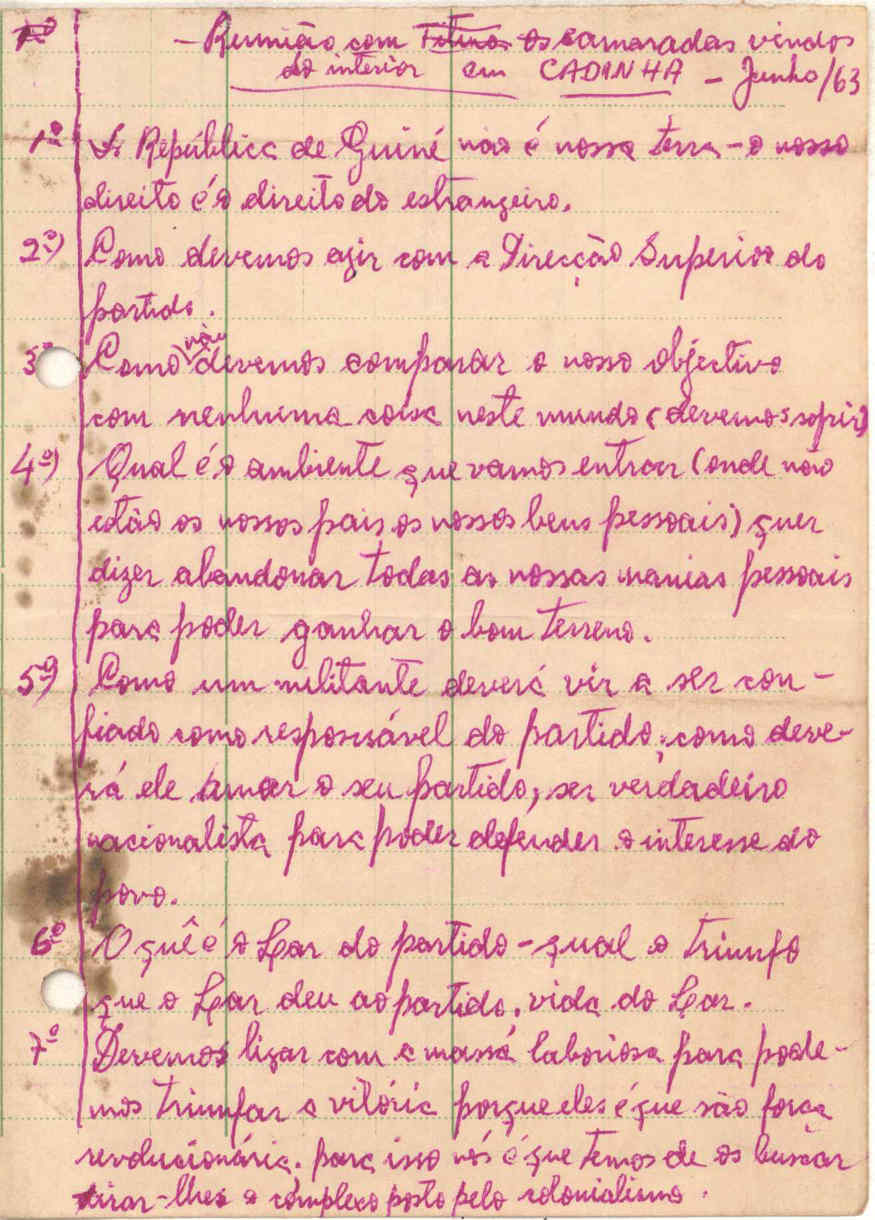 - Reunião com os camaradas vindos
do interior em CADINHA - Junho/63
1º A República de Guiné não é nossa terra - o nosso
direito é o direito do estrangeiro.
2º) Como devemos agir com a Direcção Superior do
partido.
3º Como não devemos comparar o nosso objectivo
com nenhuma coisa neste mundo (devemos sofrir)
4º) Qual é o ambiente que vamos entrar (onde não
estão os nossos pais os nossos bens pessoais) quer
dizer abandonar todas as nossas manias pessoais
para poder ganhar o bom terreno.
5º) Como um militante deverá vir a ser con-
fiado como responsável do partido, como deve-
rá ele amar o seu partido, ser verdadeiro
nacionalista para poder defender o interesse do
povo.
6º O quê é o Lar do partido - qual o triunfo
que o Lar deu ao partido, vida do Lar.
7º Devemos ligar com a massa laboriosa para pode-
mos triunfar a vitória porque eles é que são força
revolucionária. para isso nós é que temos de os buscar
tirar-lhes o complexo posto pelo colonialismo.